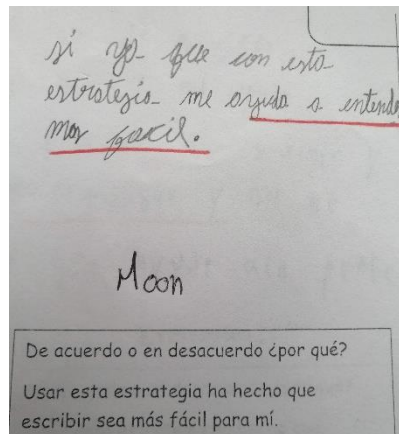 si ya que con esta
estrategia me ayuda a entende
mas facil.
Moon
De acuerdo o en desacuerdo ¿por qué?
Usar esta estrategia ha hecho que
escribir sea más fácil para mí.